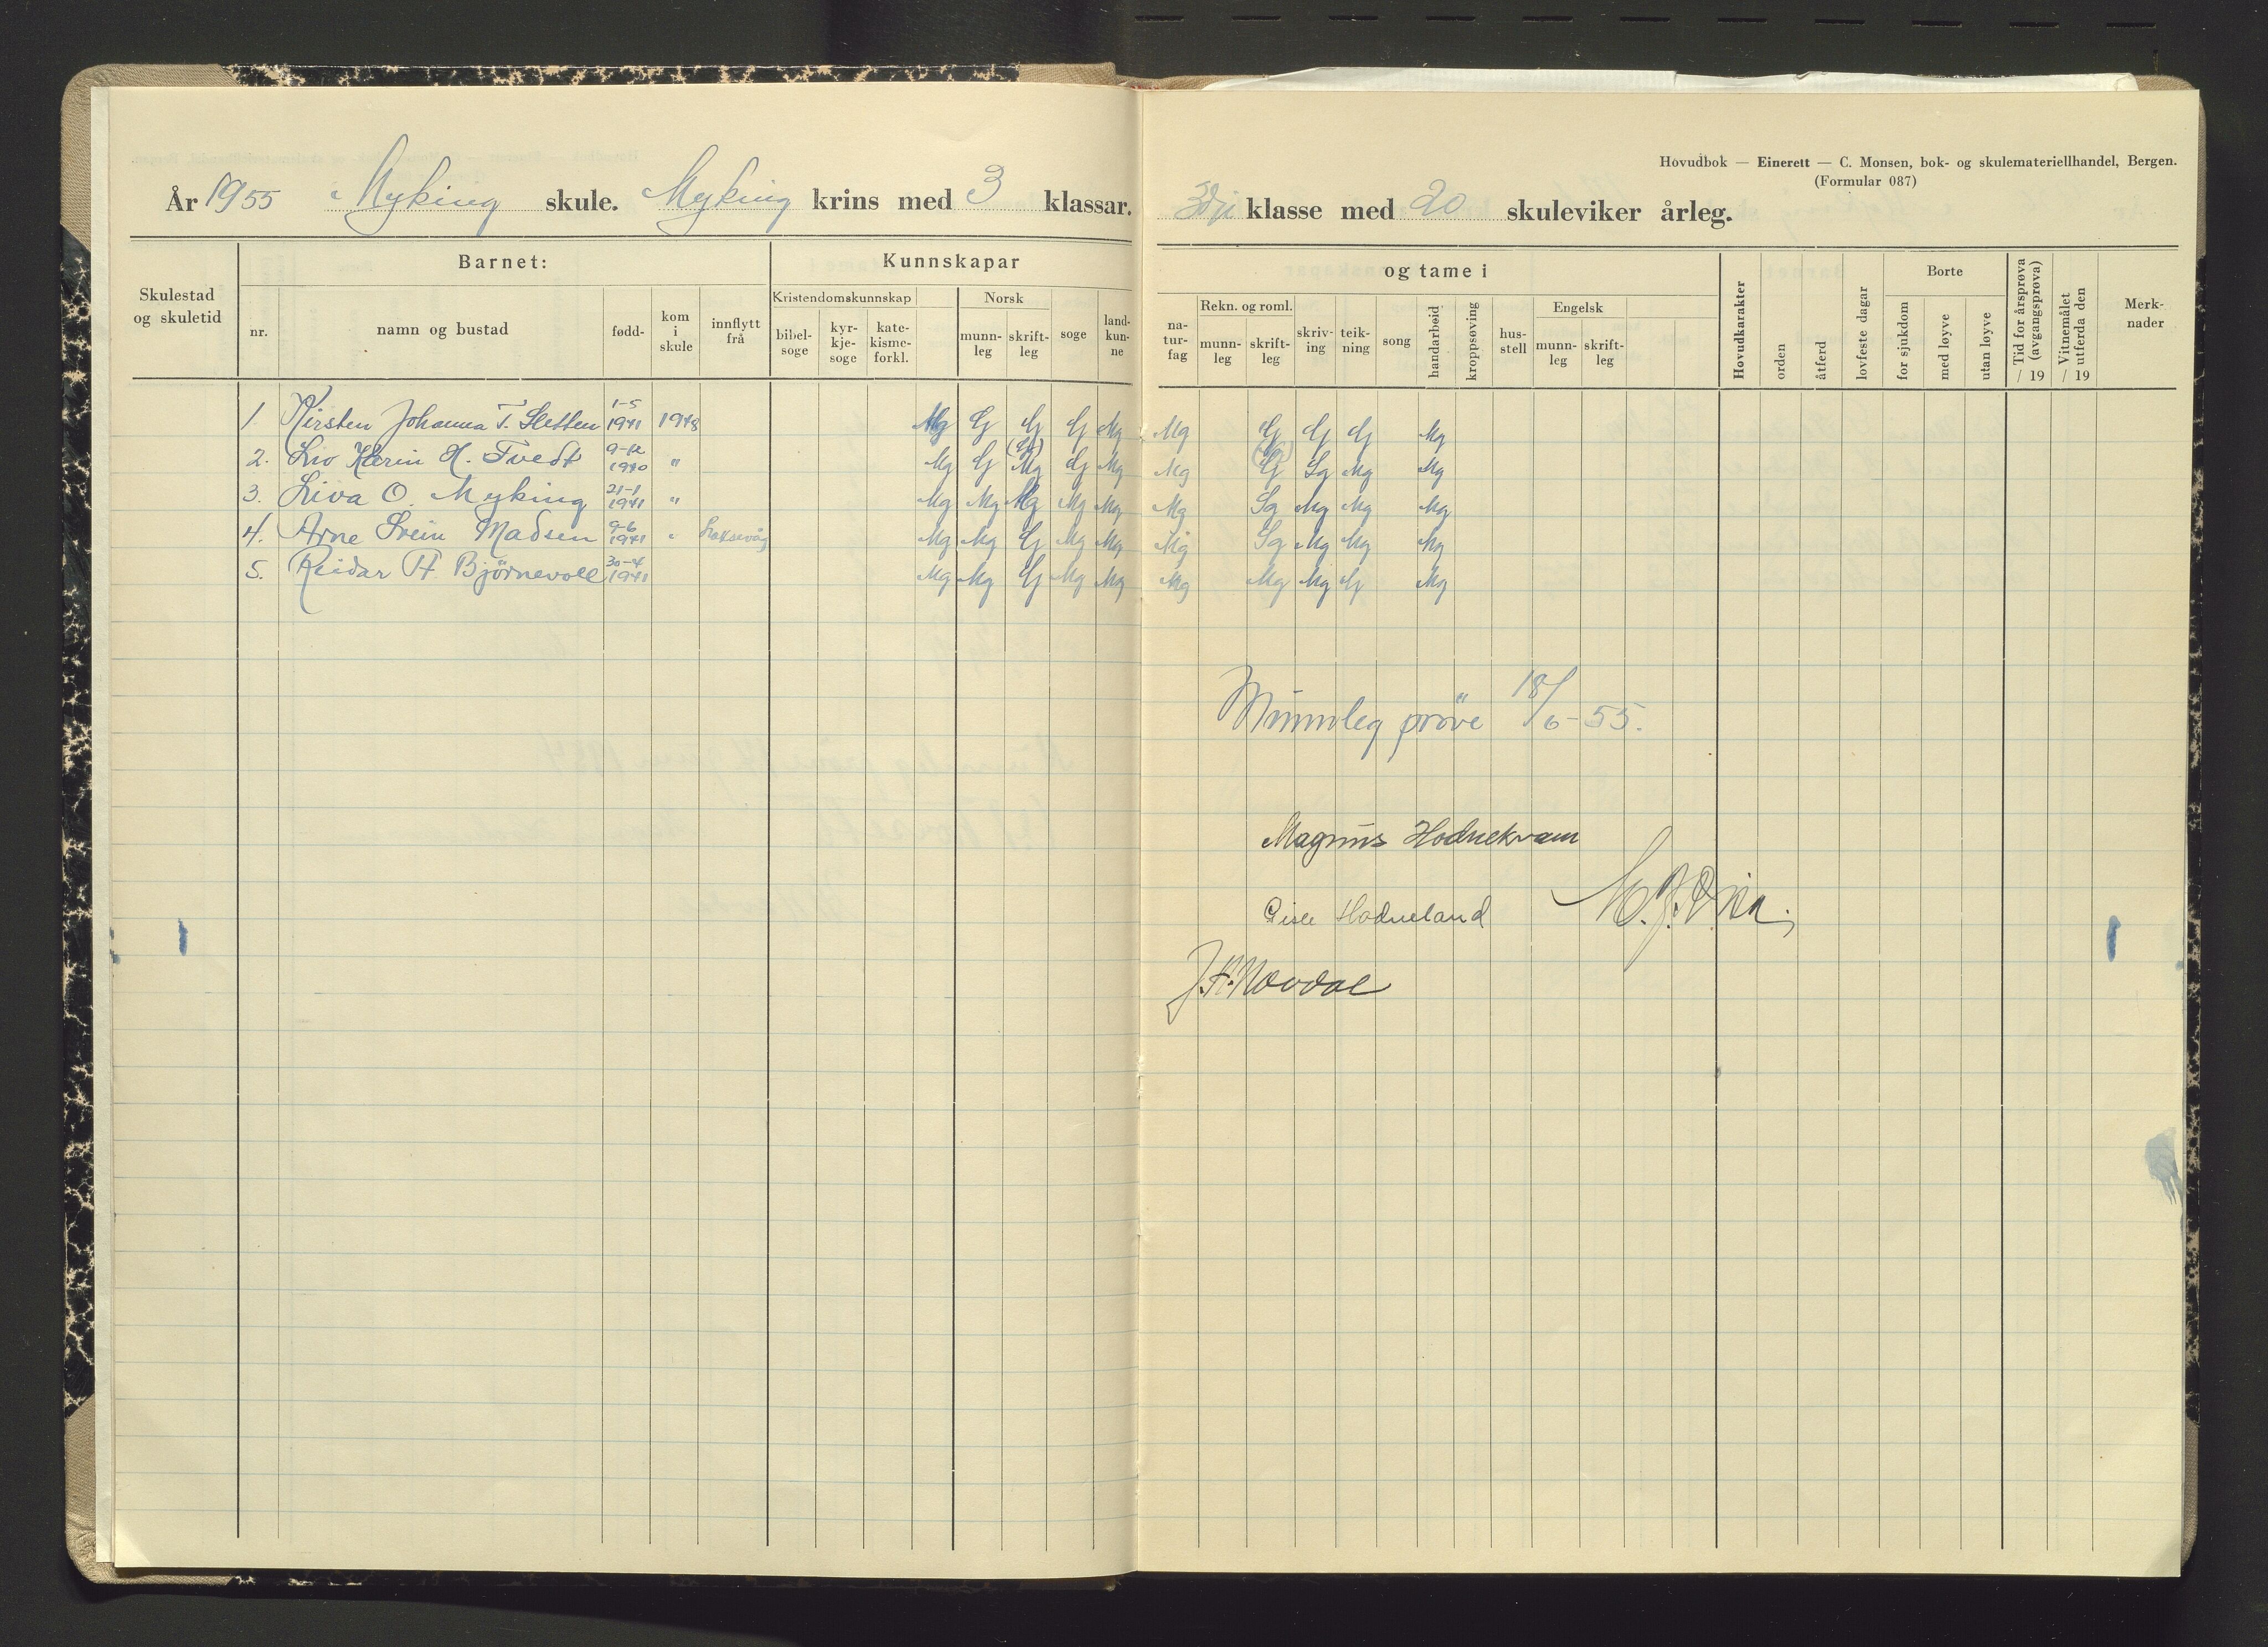 Hovudbok — Einerett — C. Monsen, bok- og skulemateriellhandel, Bergen.
(Formular 087)
År 1955 Myking skule. Myking krins med 3 klassar. 3dje klasse med 20 skuleviker årleg.
Skulestad og skuletid
Barnet:
nr.
namn og bustad
fødd-
kom i skule
innflytt frå
Kunnskapar
Kristendomskunnskap
bibel-soge
kyr-kje-soge
kate-kisme-forkl.
Norsk
munn-leg
skrift-leg
soge
land-kun-ne
og tame i
na-tur-fag
Rekn. og roml.
munn-leg
skrift-leg
skriv-ing
teik-ning
song
handarbeid
kroppsøving
hus-stell
Engelsk
munn-leg
skrift-leg
Hovudkarakter
orden
åtferd
lovfeste dagar
Borte
for sjukdom
med løyve
utan løyve
Tid for årsprøva (avgangsprøva) / 19
Vitnemålet utferda den / 19
Merk-nader
1. Kirsten Johanna T. Sletten 1-5 1941 1948 Mg G G G Mg Mg G G G Mg
2. Liv Karin H. Tvedt 9-12 1940 " Mg G Mg G Mg Mg G Sg Mg Mg
3. Liva O. Myking 21-1 1941 " Mg Mg Mg Mg Mg Mg Sg Mg Mg Mg
4. Arne Svein Madsen 9-6 1941 " Laksevåg Mg Mg G Mg Mg Mg Sg Mg Mg Mg
5. Reidar H. Björnevoll 30-4 1941 Mg Mg G Mg Mg Mg Mg Mg G Mg
Munnleg pröve 18/6-55.
Magnus Hodnekvam
Gisle Hodneland